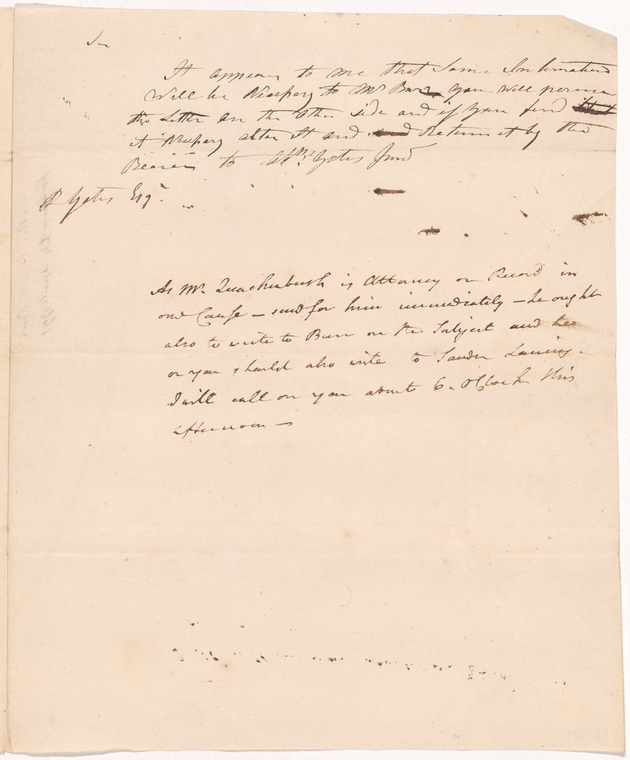 Sir
It appears to me that Some Information
will be Necessary to Mr Burr you will peruse
the Letter on the other side and if you find
it Necessary alter it and Return it by the
Bearer to Yates Junr
R Yates Esqr.
As Mr. Quackenbush is Attorney on Record in
one Cause – send for him immediately – he ought
also to write to Burr on the Subject and he
or you should also write to Sander Lansing.
I will call on you about 6. oClock this
afternoon –